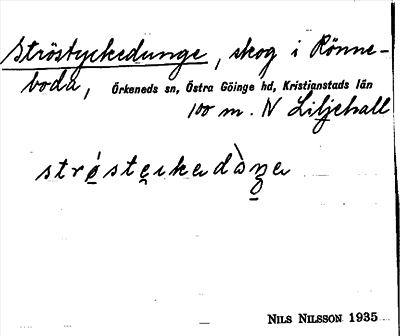 Ströstyckedunge, skog i Rönne-
boda, Örkeneds sn, Östra Göinge hd, Kristianstads län
100 m. N Liljehall
NILS NILSSON 1935